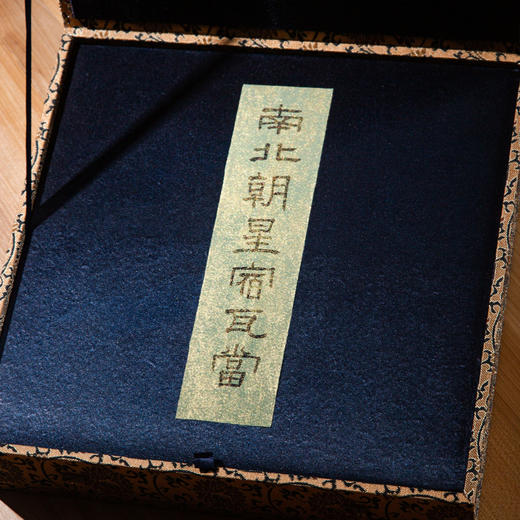 南北朝星宿瓦當